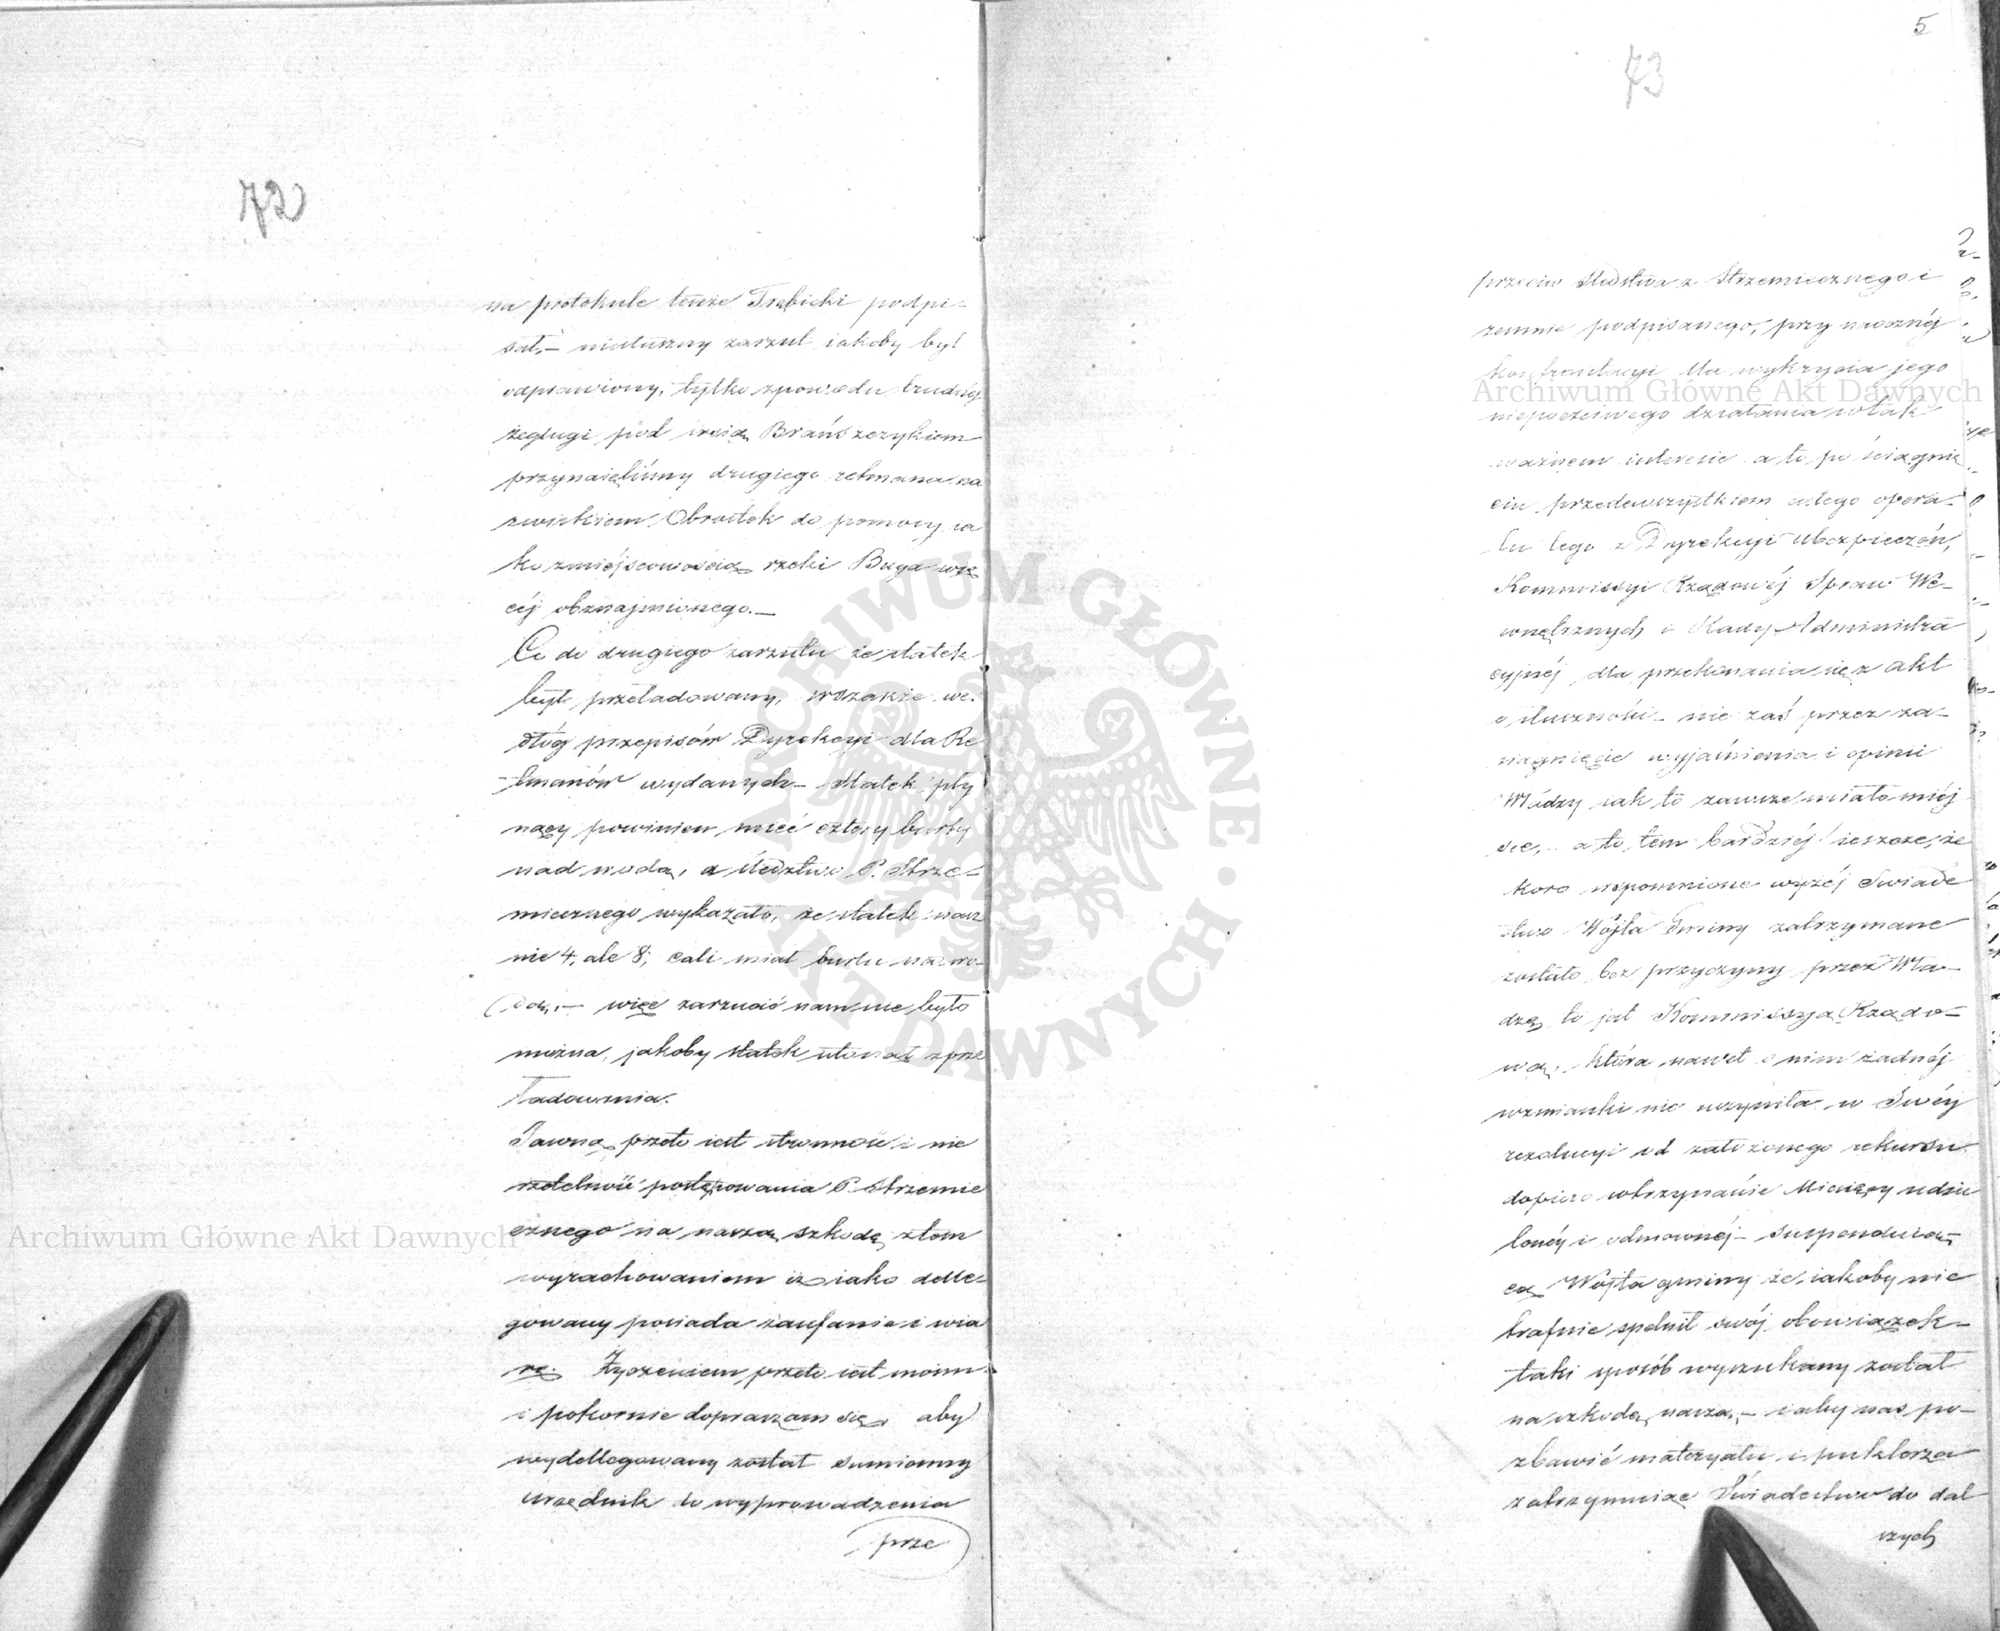 72
na protokule tenże Trębicki podpi-
sał,— niesłuszny zarzut iakoby był
odprawiony, tylko z powodu trudnéj
żeglugi pod wsią Brańszczykiem
przynaięliśmy drugiego retmana na
zwiskiem Obrostek do pomocy ia
ko zmiéjscowością rzeki Buga wię
céj obznajmionego.—
Co do drugiego zarzutu że statek
był przeładowany, wszakże we-
dług przepisów Dyrekcyi dla Re
tmanów wydanych— statek pły
nący powinien mieć cztery burty
nad wodą, a śledztwo P. Strze-
miecznego wykazało, że statek nasz
nie 4, ale 8, cali miał burtu nad wo-
dą,— więc zarzucić nam nie było
można, jakoby statek utonął z prze
ładowania.
Jawną przeto iest stronność i nie
rzetelność postępowania P. Strzemie
cznego na naszą szkodę, z tem
wyrachowaniem iż iako delle-
gowany posiada zaufanie i wia
rę. Życzeniem przeto iest moim
i pokornie dopraszam się, aby
wydellegowany został sumienny
urzędnik to wyprowadzenia
prze
5
73
przeciw śledztwa z Strzemiecznego i
zemnie podpisanego, przy naocznéj
konfrontacyi dla wykrycia jego
niepoczciwego działania w tak
ważnem interesie a to po ściągnię
ciu przedewszystkiem całego opera-
tu tego z Dyrekcyi Ubezpieczeń,
Kommissyi Rządowéj Spraw We-
wnętrznych i Rady Administra
cyjnéj dla przekonania się z akt
o słuszności— nie zaś przez za-
ciągnięcie wyjaśnienia i opinii
Władzy iak to zawsze miało miéj
sce,— a to, tem bardziéj ieszcze, że
skoro wspomnione wyżéj Świade
ctwo Wójta Gminy zatrzymane
zostało bez przyczyny przez Wła-
dzę to jest Kommissya Rządo-
wa, która nawet o nim żadnéj
wzmianki nie uczyniła w Swéy
rezolucyi od założonego rekursu
dopiero
lonéy i odmownéj— suspenduiąc
Wójta gminy że iakoby nie
trafnie spełnił swój obowiązek—
taki sposób wyszukany został
na szkodę naszą,— i aby nas po-
zbawić materyału i puklerza
zatrzymuiąc Świadectwo do dal
szych
Archiwum Główne Akt Dawnych
Archiwum Główne Akt Dawnych
ARCHIWUM GŁÓWNE · AKT DAWNYCH ·